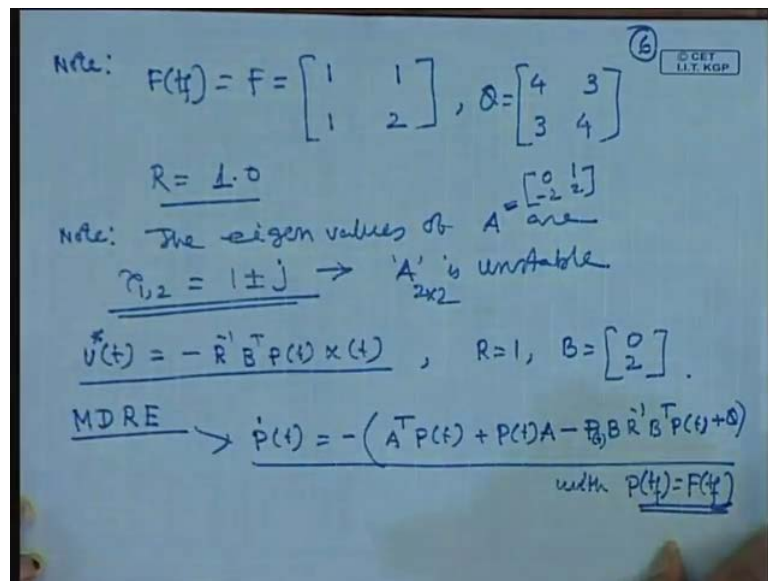 6
© CET
I.I.T. KGP
Note: F(tf) = F = [1 1; 1 2], Q = [4 3; 3 4]
R = 1.0
Note: The eigen values of A = [0 1; -2 2] are
λ1,2 = 1 ± j → 'A' 2x2 is unstable.
u*(t) = - R⁻¹ Bᵀ P(t) x(t), R = 1, B = [0; 2].
MDRE → Ṗ(t) = - (Aᵀ P(t) + P(t) A - P(t) B R⁻¹ Bᵀ P(t) + Q)
with P(tf) = F(tf)